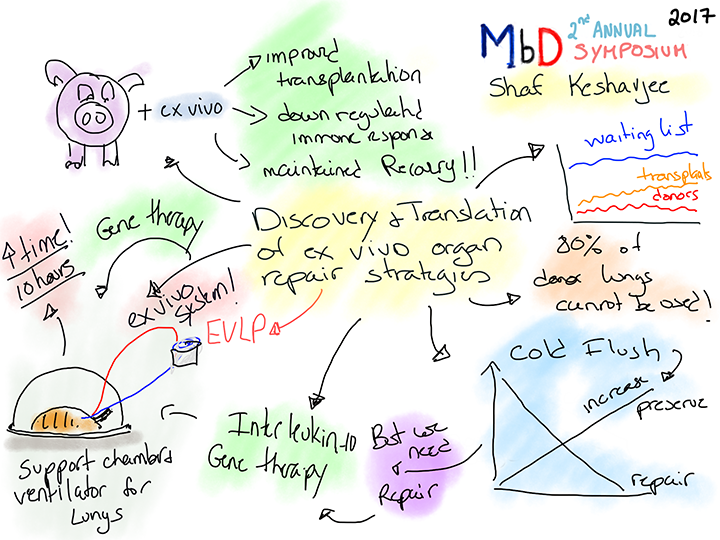 2017
MbD 2nd ANNUAL
SYMPOSIUM
Shaf Keshavjee
+ ex vivo
improved
transplantation
down regulated
immune response
maintained Recovery!!
waiting list
transplants
donors
Discovery & Translation
of ex vivo organ
repair strategies
80% of
donor lungs
cannot be used!
Gene therapy
↑ time!
10 hours
ex vivo
system!
EVLP
Support chamber &
ventilator for
Lungs
Interleukin-10
Gene therapy
But we
need
Repair
Cold Flush
increase
preserve
repair